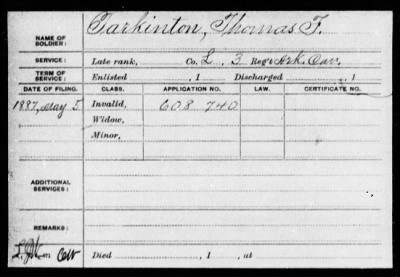 NAME OF SOLDIER: Tarkinton, Thomas F.
SERVICE: Late rank, Co. L. 3 Reg't Ark. Cav.
TERM OF SERVICE: Enlisted , 1 Discharged , 1
DATE OF FILING. CLASS. APPLICATION NO. LAW. CERTIFICATE NO.
1887, May 5 Invalid, 608 740
Widow,
Minor,
ADDITIONAL SERVICES:
REMARKS:
Died , 1 , at